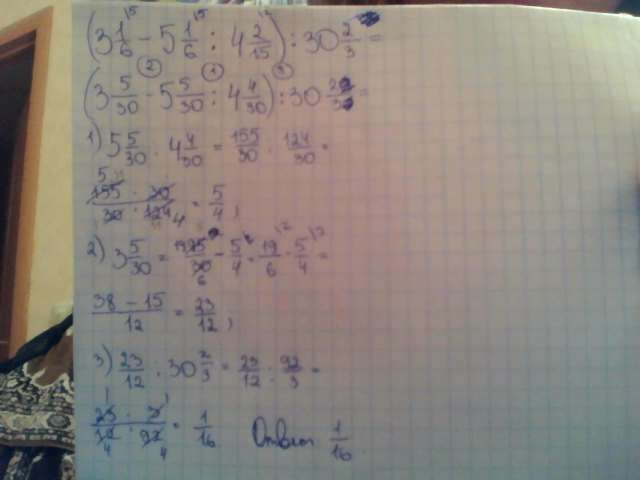 (3 1/6 - 5 1/6 : 4 2/15) : 30 2/3 =
(3 5/30 - 5 5/30 : 4 4/30) : 30
1) 5 5/30 : 4 4/30 = 155/30 : 124/30 =
155 · 30 / 30 · 124 = 5/4;
2) 3 5/30 = 95/30 - 5/4 = 19/6 - 5/4 =
38 - 15 / 12 = 23/12;
3) 23/12 : 30 2/3 = 23/12 : 92/3 =
23 · 3 / 12 · 92 = 1/16 Ответ 1/16.